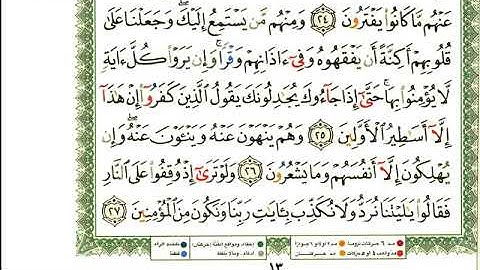 عَنْهُم مَّا كَانُوا۟ يَفْتَرُونَ ۝٢٤ وَمِنْهُم مَّن يَسْتَمِعُ إِلَيْكَ ۖ وَجَعَلْنَا عَلَىٰ
قُلُوبِهِمْ أَكِنَّةً أَن يَفْقَهُوهُ وَفِىٓ ءَاذَانِهِمْ وَقْرًا ۚ وَإِن يَرَوْا۟ كُلَّ ءَايَةٍ
لَّا يُؤْمِنُوا۟ بِهَا ۚ حَتَّىٰٓ إِذَا جَآءُوكَ يُجَـٰدِلُونَكَ يَقُولُ ٱلَّذِينَ كَفَرُوٓا۟ إِنْ هَـٰذَآ
إِلَّآ أَسَـٰطِيرُ ٱلْأَوَّلِينَ ۝٢٥ وَهُمْ يَنْهَوْنَ عَنْهُ وَيَنْـَٔوْنَ عَنْهُ ۖ وَإِن
يُهْلِكُونَ إِلَّآ أَنفُسَهُمْ وَمَا يَشْعُرُونَ ۝٢٦ وَلَوْ تَرَىٰٓ إِذْ وُقِفُوا۟ عَلَى ٱلنَّارِ
فَقَالُوا۟ يَـٰلَيْتَنَا نُرَدُّ وَلَا نُكَذِّبَ بِـَٔايَـٰتِ رَبِّنَا وَنَكُونَ مِنَ ٱلْمُؤْمِنِينَ ۝٢٧
١٣